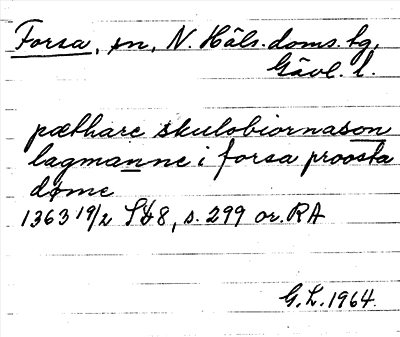 Forsa, sn, N. Häls. doms. tg,
Gävl. l.
pæthare skulobiornason
lagmanne i forsa proosta
døme
1363 19/2 SD8, s. 299 or. RA
G.L. 1964.